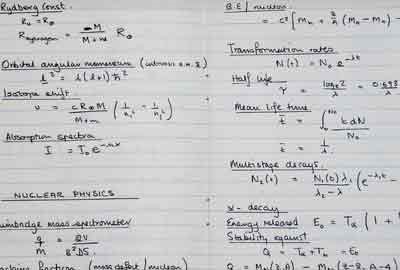 Rydberg Const.
R₀ = R∞
R hydrogen = M / M+m R∞
Orbital angular momentum (
l² = l(l+1) ħ²
Isotope shift.
ν = cR∞M / M+m ( 1/n₁² - 1/n₂² )
Absorption spectra
I = I₀e
NUCLEAR PHYSICS
mass spectrometer
q/m =
fraction (mass defect / nucleon)
B.E / nucleon
= c² [ Mn + Z/A (MH - Mn) -
Transformation rates
N(t) = N₀ e^-λt
Half life
τ = loge2 / λ = 0.693 / λ
Mean life time
t̄ = ∫₀^N₀ t dN / N₀
t̄ = 1/λ
Multistage decays.
N₂(t) = N₁(0) λ₁ / λ₂ - λ₁ ( e^-λ₁t -
α - decay
Energy released E₀ = Tα ( 1 +
Stability against
Q = Tα + Tb = E₀
Q = (Z, A) - (Z-2, A-4)